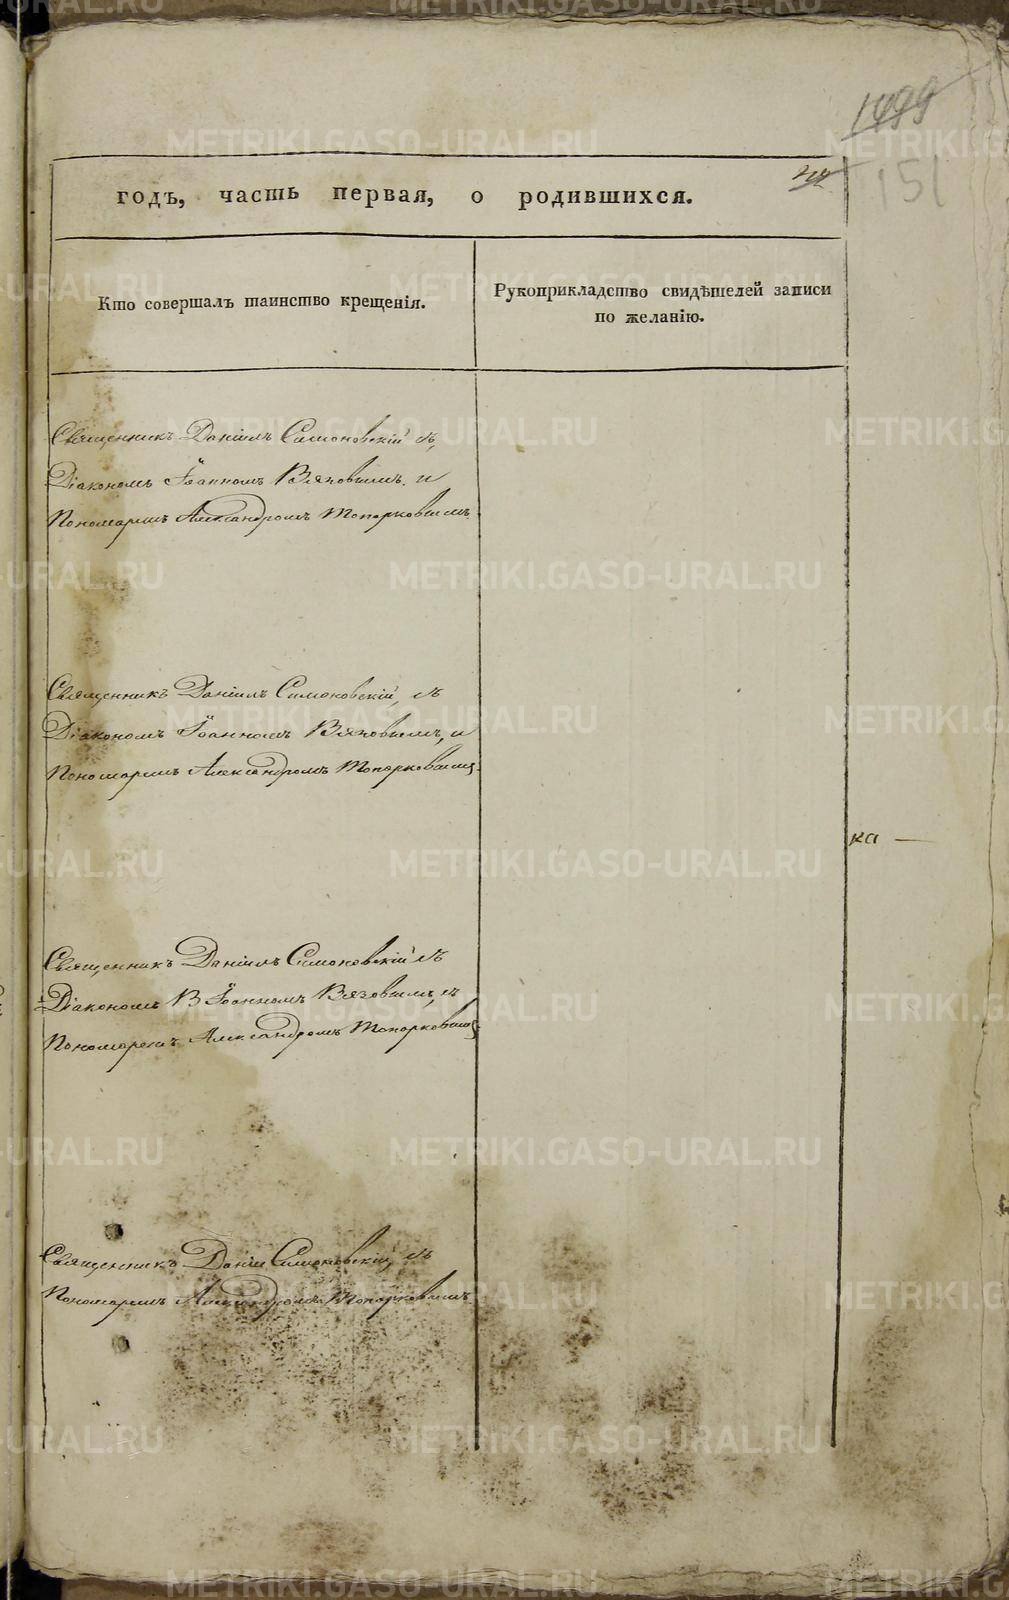 1499
151
годъ, часть первая, о родившихся.
Кто совершалъ таинство крещенія.
Рукоприкладство свидѣтелей записи
по желанію.
Священникъ Даніилъ Симоновскій съ
Діакономъ Іоанномъ Вязовымъ и
Пономаремъ Александромъ Топорковымъ
Священникъ Даніилъ Симоновскій, съ
Діакономъ Іоанномъ Вязовымъ, и
Пономаремъ Александромъ Топорковымъ
ка —
Священникъ Даніилъ Симоновскій съ
Діакономъ В Іоанномъ Вязовымъ, съ
Пономаремъ Александромъ Топорковымъ
Священникъ Даніил Симоновскій, съ
Пономаремъ Александромъ Топорковымъ.
METRIKI.GASO-URAL.RU